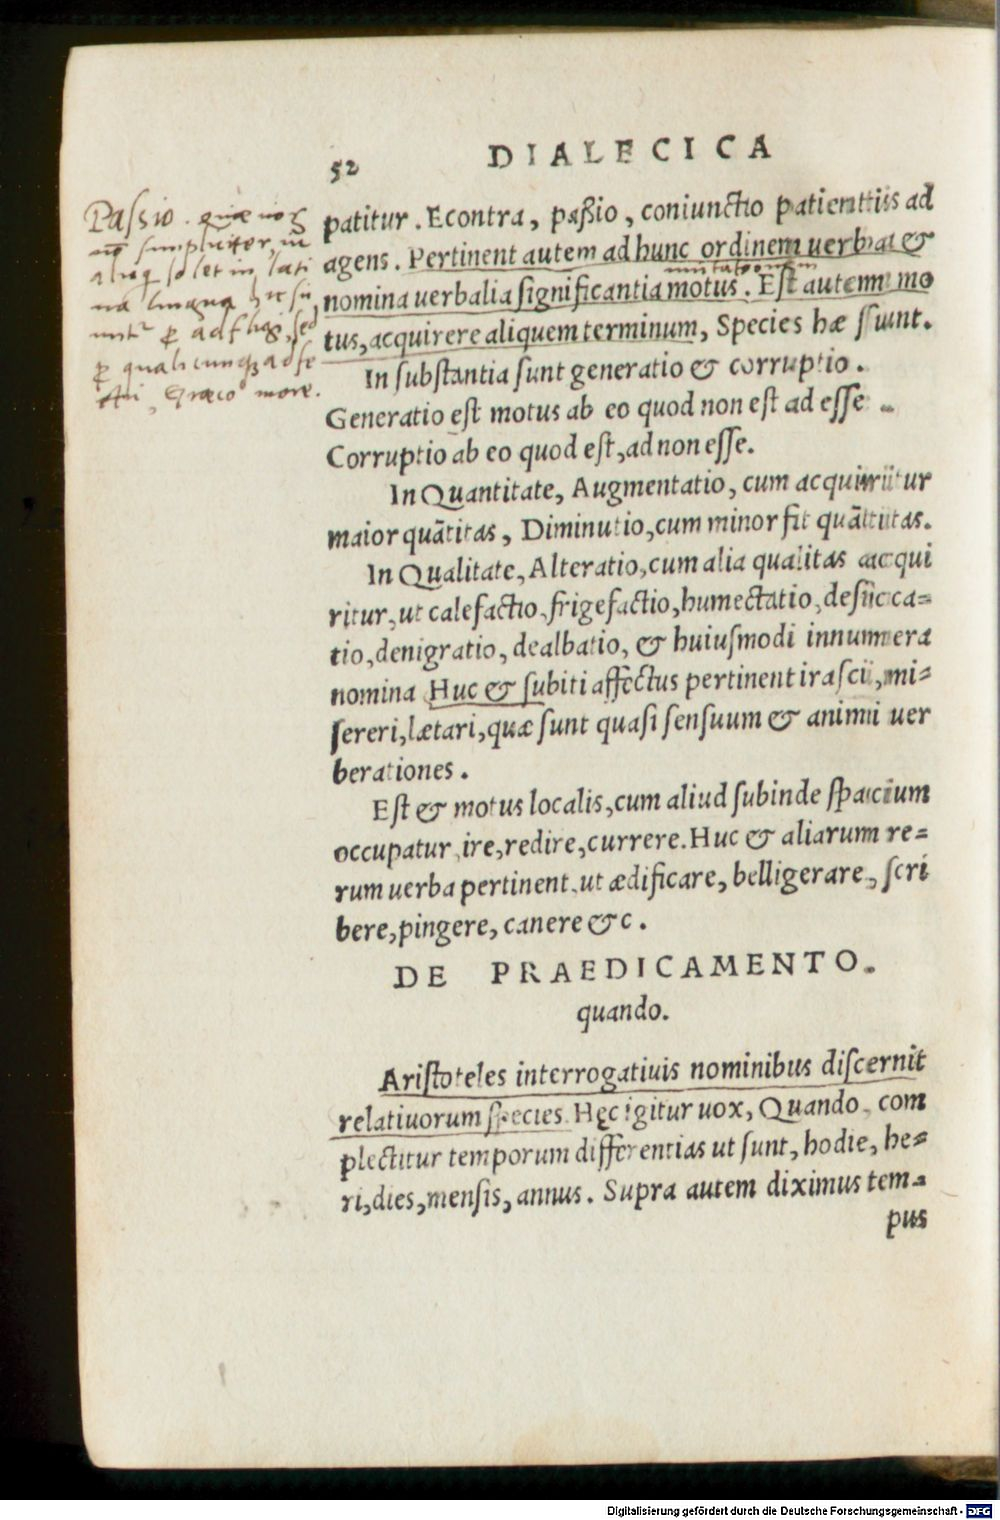 52 DIALECICA
Passio. quæ uox
nō simpliciter, ut
solet in lati
na lingua hic sū
mit² ꝑ adfligi, sed
ꝑ qualicunqꝫ adfe
ctu, Græco more.
patitur. Econtra, paßio, coniunctio patientiis ad
agens. Pertinent autem ad hunc ordinem uerba &
mutationem
nomina uerbalia significantia motus. Est autem mo
tus, acquirere aliquem terminum, Species hæ sunt.
In substantia sunt generatio & corruptio.
Generatio est motus ab eo quod non est ad esse.
Corruptio ab eo quod est, ad non esse.
In Quantitate, Augmentatio, cum acquiritur
maior quātitas, Diminutio, cum minor fit quātitas.
In Qualitate, Alteratio, cum alia qualitas acqui
ritur, ut calefactio, frigefactio, humectatio, desicca=
tio, denigratio, dealbatio, & huiusmodi innumera
nomina Huc & subiti affectus pertinent irasci, mi=
sereri, lætari, quæ sunt quasi sensuum & animi uer
berationes.
Est & motus localis, cum aliud subinde spacium
occupatur, ire, redire, currere. Huc & aliarum re=
rum uerba pertinent, ut ædificare, belligerare, scri
bere, pingere, canere &c.
DE PRAEDICAMENTO.
quando.
Aristoteles interrogatiuis nominibus discernit
relatiuorum species. Hęc igitur uox, Quando, com
plectitur temporum differentias ut sunt, hodie, he=
ri, dies, mensis, annus. Supra autem diximus tem=
pus
Digitalisierung gefördert durch die Deutsche Forschungsgemeinschaft - DFG